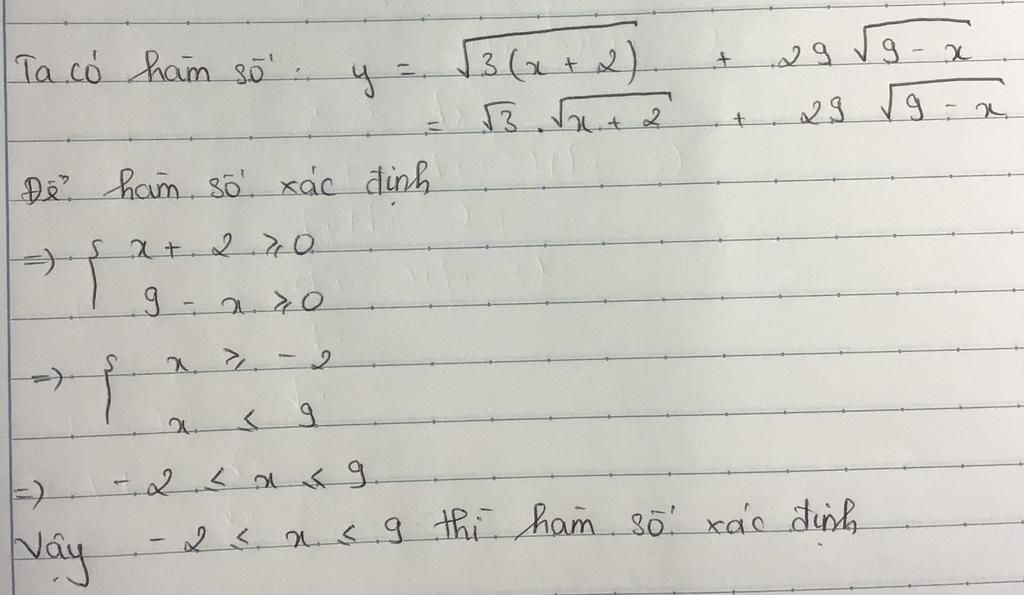 Ta có hàm số: y = √3(x + 2) + 29 √9 - x
= √3 . √x + 2 + 29 √9 - x
Để hàm số xác định
=> { x + 2 ≥ 0
9 - x ≥ 0
=> { x ≥ - 2
x ≤ 9
=> - 2 ≤ x ≤ 9
Vậy - 2 ≤ x ≤ 9 thì hàm số xác định